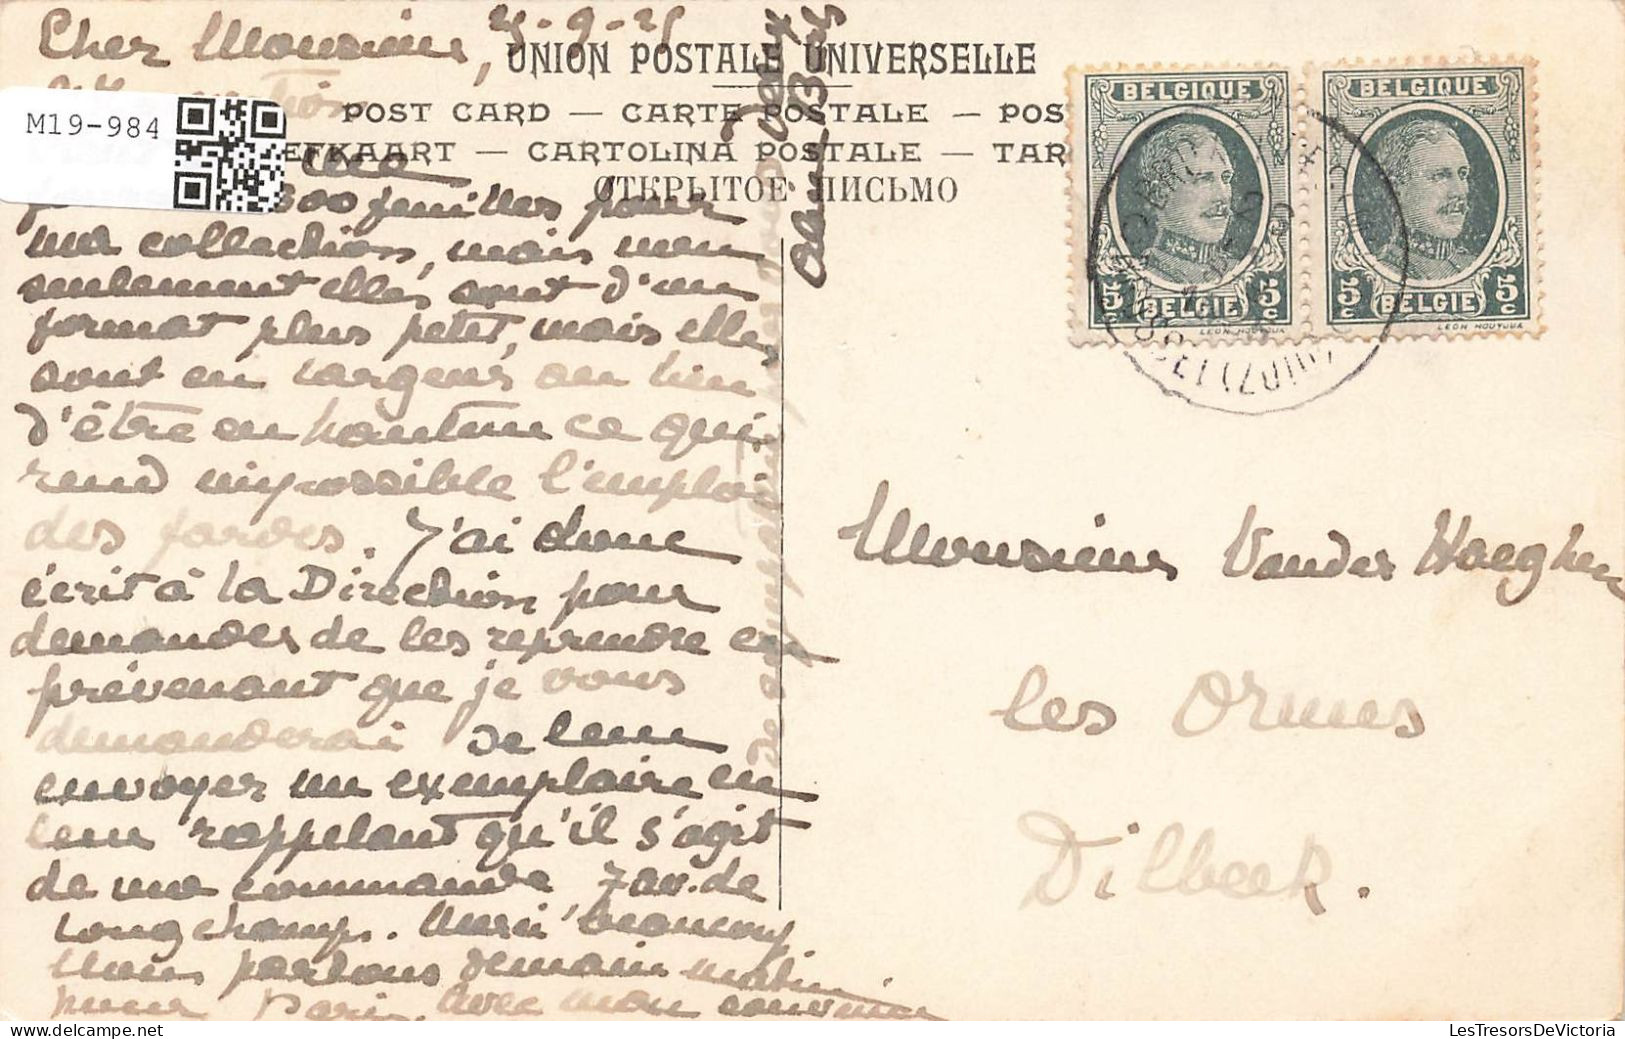 Cher Monsieur,
UNION POSTALE UNIVERSELLE
POST CARD — CARTE POSTALE — POS
EFKAART — CARTOLINA POSTALE — TAR
ОТКРЫТОЕ ПИСЬМО
M19-984
300 feuilles pour
ma collection, mais non
seulement elles sont d'un
format plus petit, mais elles
sont en largeur au lieu
d'être en hauteur ce qui
rend impossible l'emploi
des fardes. J'ai donc
écrit à la Direction pour
demander de les reprendre en
prévenant que je vous
demanderai de leur
envoyer un exemplaire en
leur rappelant qu'il s'agit
de ma commande 7 av. de
Longchamp. Merci beaucoup
Nous partons demain matin
pour Paris. Avec mon souvenir
BELGIQUE
5c BELGIE 5c
LEON HOUYOUX
BELGIQUE
5c BELGIE 5c
LEON HOUYOUX
Monsieur Vander Haeghen
les Ormes
Dilbeek.
LesTresorsDeVictoria